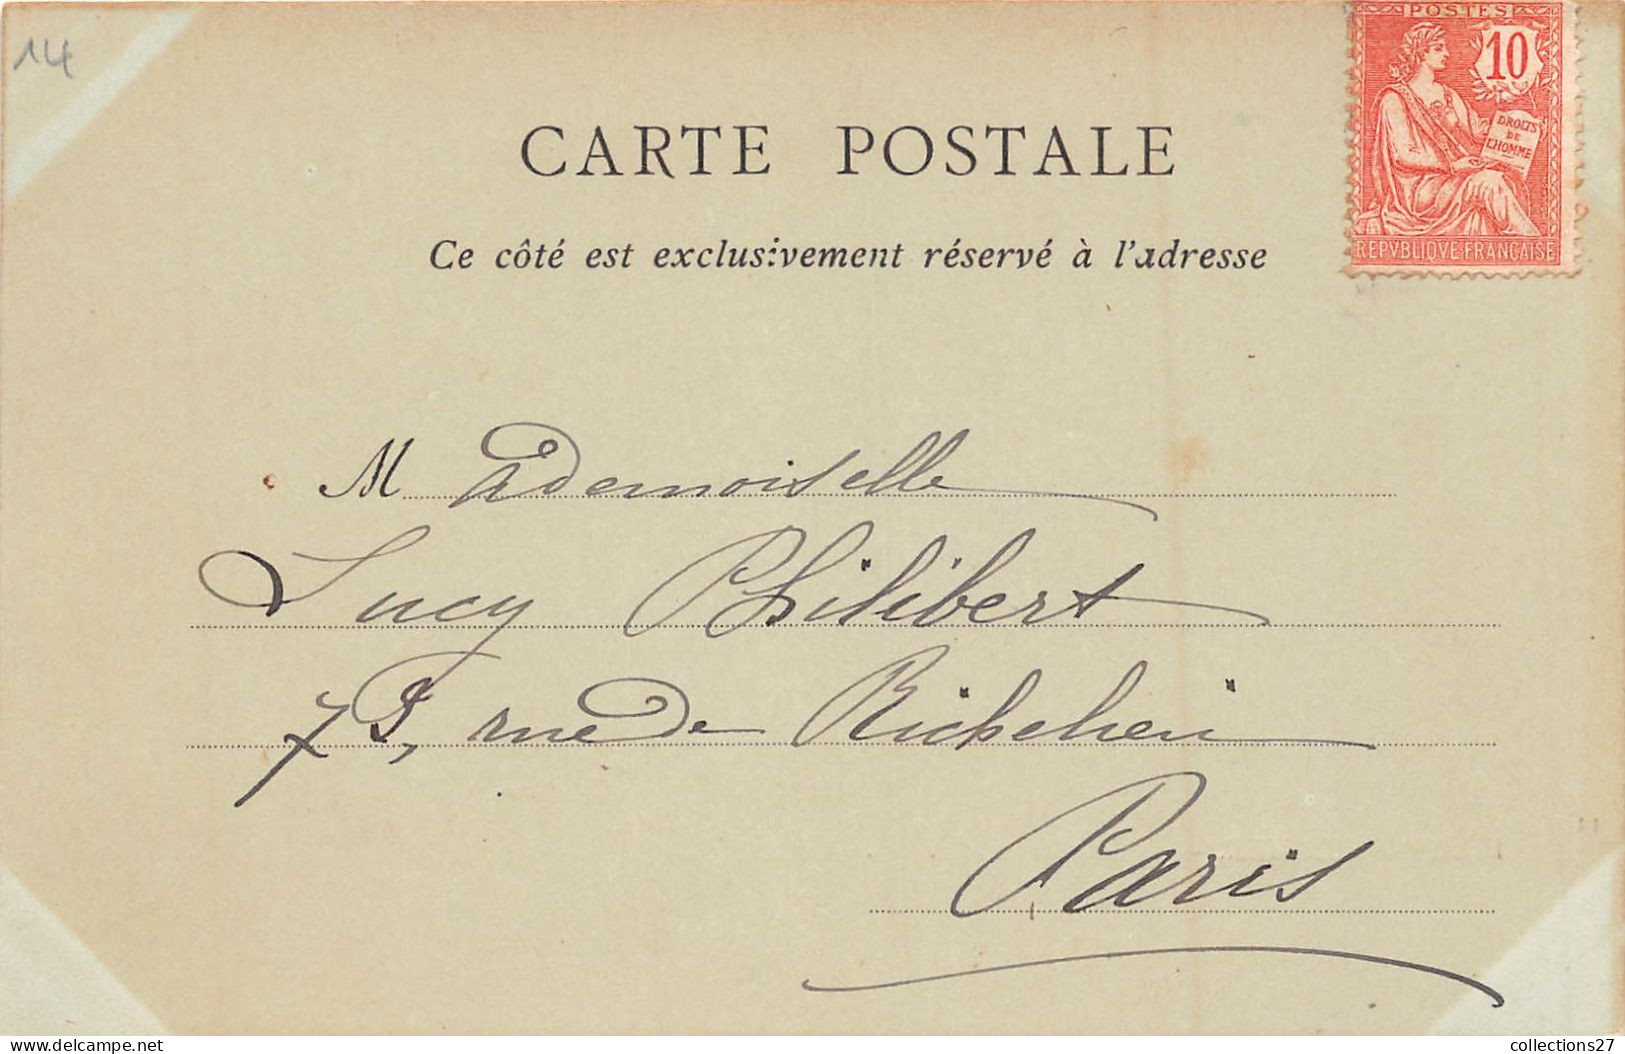 14
POSTES
10
DROITS
DE
L'HOMME
REPVBLIQVE FRANÇAISE
CARTE POSTALE
Ce côté est exclusivement réservé à l'adresse
Mademoiselle
Lucy Philibert
73, rue de Richelieu
Paris
collections27